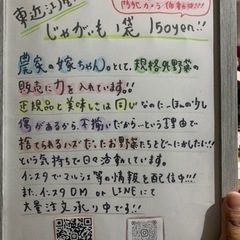 東近江産
防犯カメラ
じゃがいも 1袋 150yen!!
農家の嫁ちゃん。として、規格外野菜の
販売に力を入れています!
正規品と美味しさは同じなのに…ほんの少し
傷があるから、不揃いだから…という理由で
捨てられるハズだったお野菜たちをどーにかしたい!!!
という気持ちで日々活動しています。
インスタでマルシェ等の情報を配信中!!!
また、インスタDM or LINEにて
大量注文承り中です!!